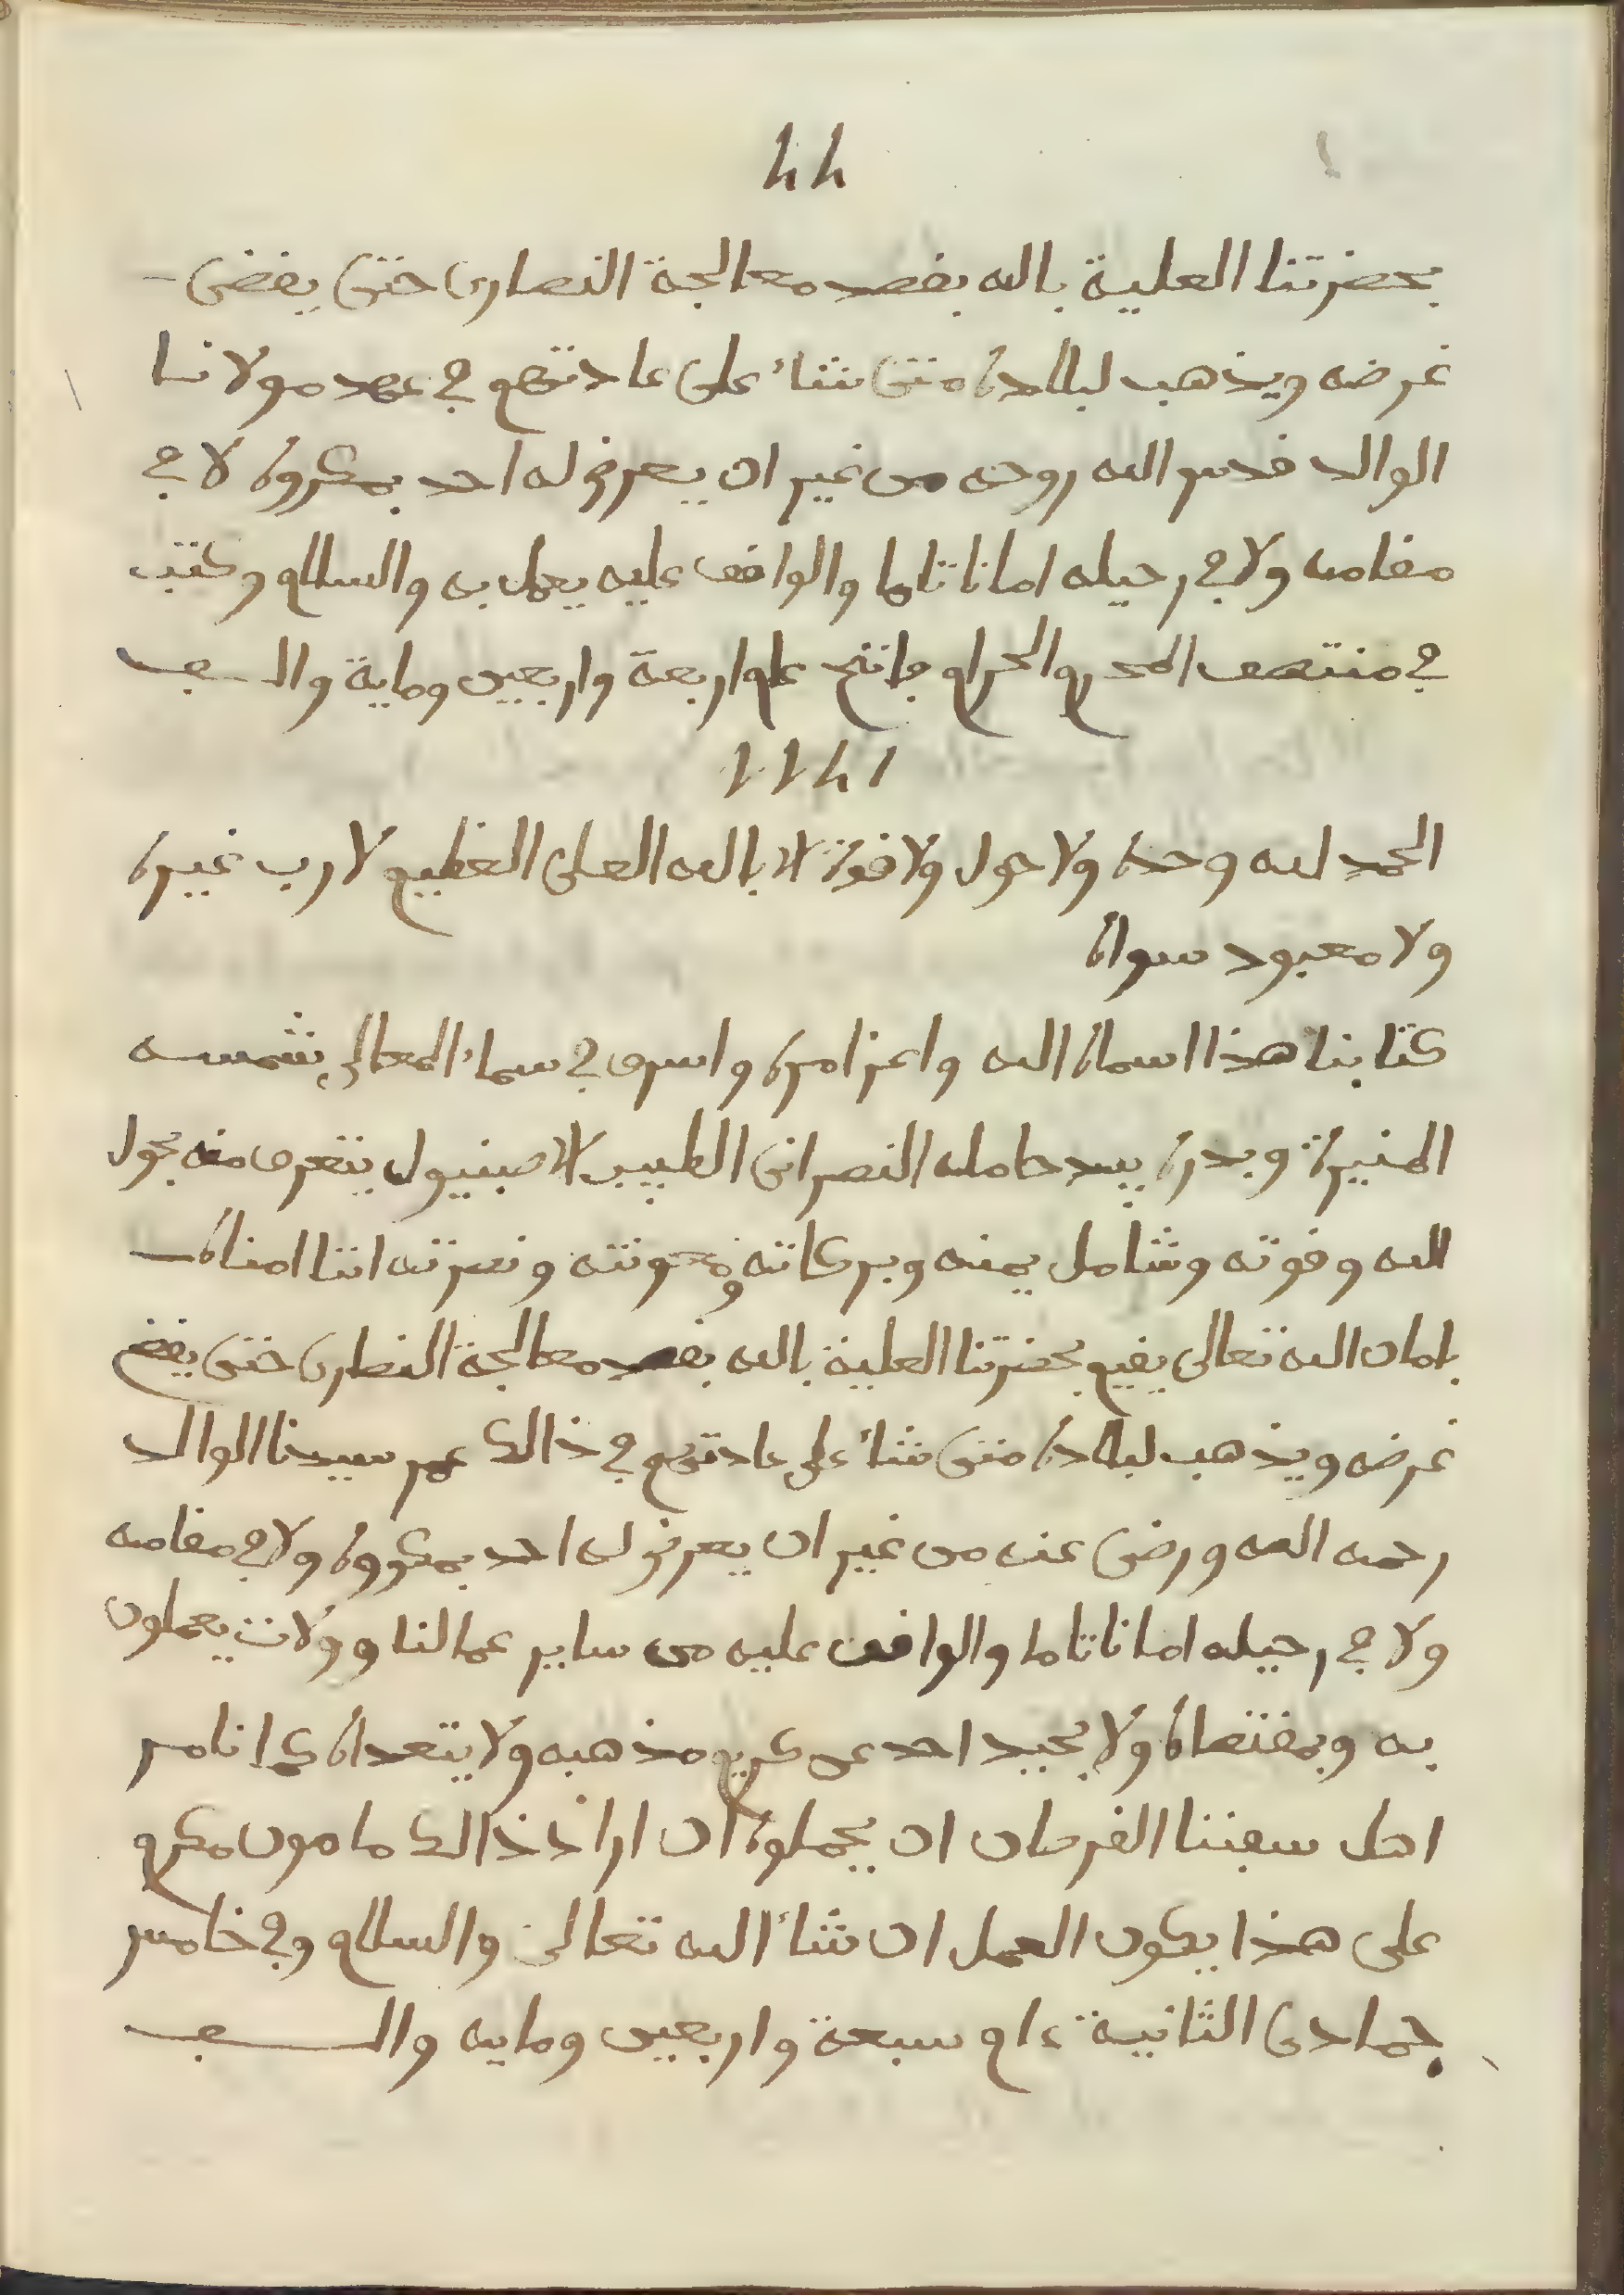 44
بحضرتنا العلية بالله بقصد معالجة النصارى حتى يقضى
غرضه ويذهب لبلاده متى شاء على عادتهم في عهد مولانا
الوالد قدس الله روحه من غير ان يعرض له احد بمكروه لا في
مقامه ولا في رحيله امانا تاما والواقف عليه يعمل به والسلام وكتب
في منتصف المحرم الحرام فاتح عام اربعة واربعين وماية والف
1144
الحمد لله وحده ولا حول ولا قوة الا بالله العلى العظيم لا رب غيره
ولا معبود سواه
كتابنا هذا اسماه الله واعز امره واسرى في سماء المعالي شمسه
المنيرة وبدره بيد حامله النصرانى الطبيب الاصبنيول يتعرف منه بحول
الله وقوته وشامل يمنه وبركاته ومعونته ونصرته اننا امناه
بامان الله تعالى يقيم بحضرتنا العلية بالله بقصد معالجة النصارى حتى يقضي
غرضه ويذهب لبلاده متى شاء على عادتهم في ذالك عهد سيدنا الوالد
رحمه الله ورضى عنه من غير ان يعرض له احد بمكروه ولا في مقامه
ولا في رحيله امانا تاما والواقف عليه من ساير عمالنا وولات يعملون
به وبمقتضاه ولا يحيد احد عن كريم مذهبه ولا يتعداه كما نامر
اهل سفننا القرصان ان يحملوه ان اراد ذالك مامون مكرم
على هذا يكون العمل ان شاء الله تعالى والسلام وفي خامس
جمادى الثانية عام سبعة واربعين وماية والف